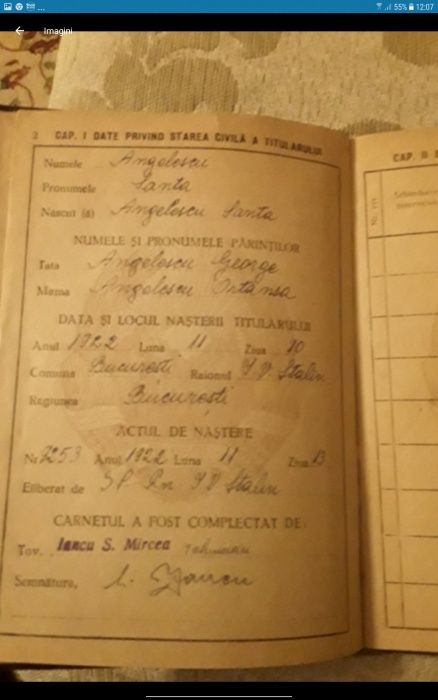 55% 12:07
Imagini
2 CAP. I DATE PRIVIND STAREA CIVILĂ A TITULARULUI
Numele Angelescu
Pronumele Santa
Născut (ă) Angelescu Santa
NUMELE ȘI PRONUMELE PĂRINȚILOR
Tata Angelescu George
Mama Angelescu Ortansa
DATA ȘI LOCUL NAȘTERII TITULARULUI
Anul 1922 Luna 11 Ziua 10
Comuna București Raionul I V Stalin
Regiunea București
ACTUL DE NAȘTERE
Nr. 7253 Anul 1922 Luna 11 Ziua 13
Eliberat de SP Rn I V Stalin
CARNETUL A FOST COMPLECTAT DE:
Tov. Iancu S. Mircea
Semnătura, Iancu
CAP. II
Nr. crt.